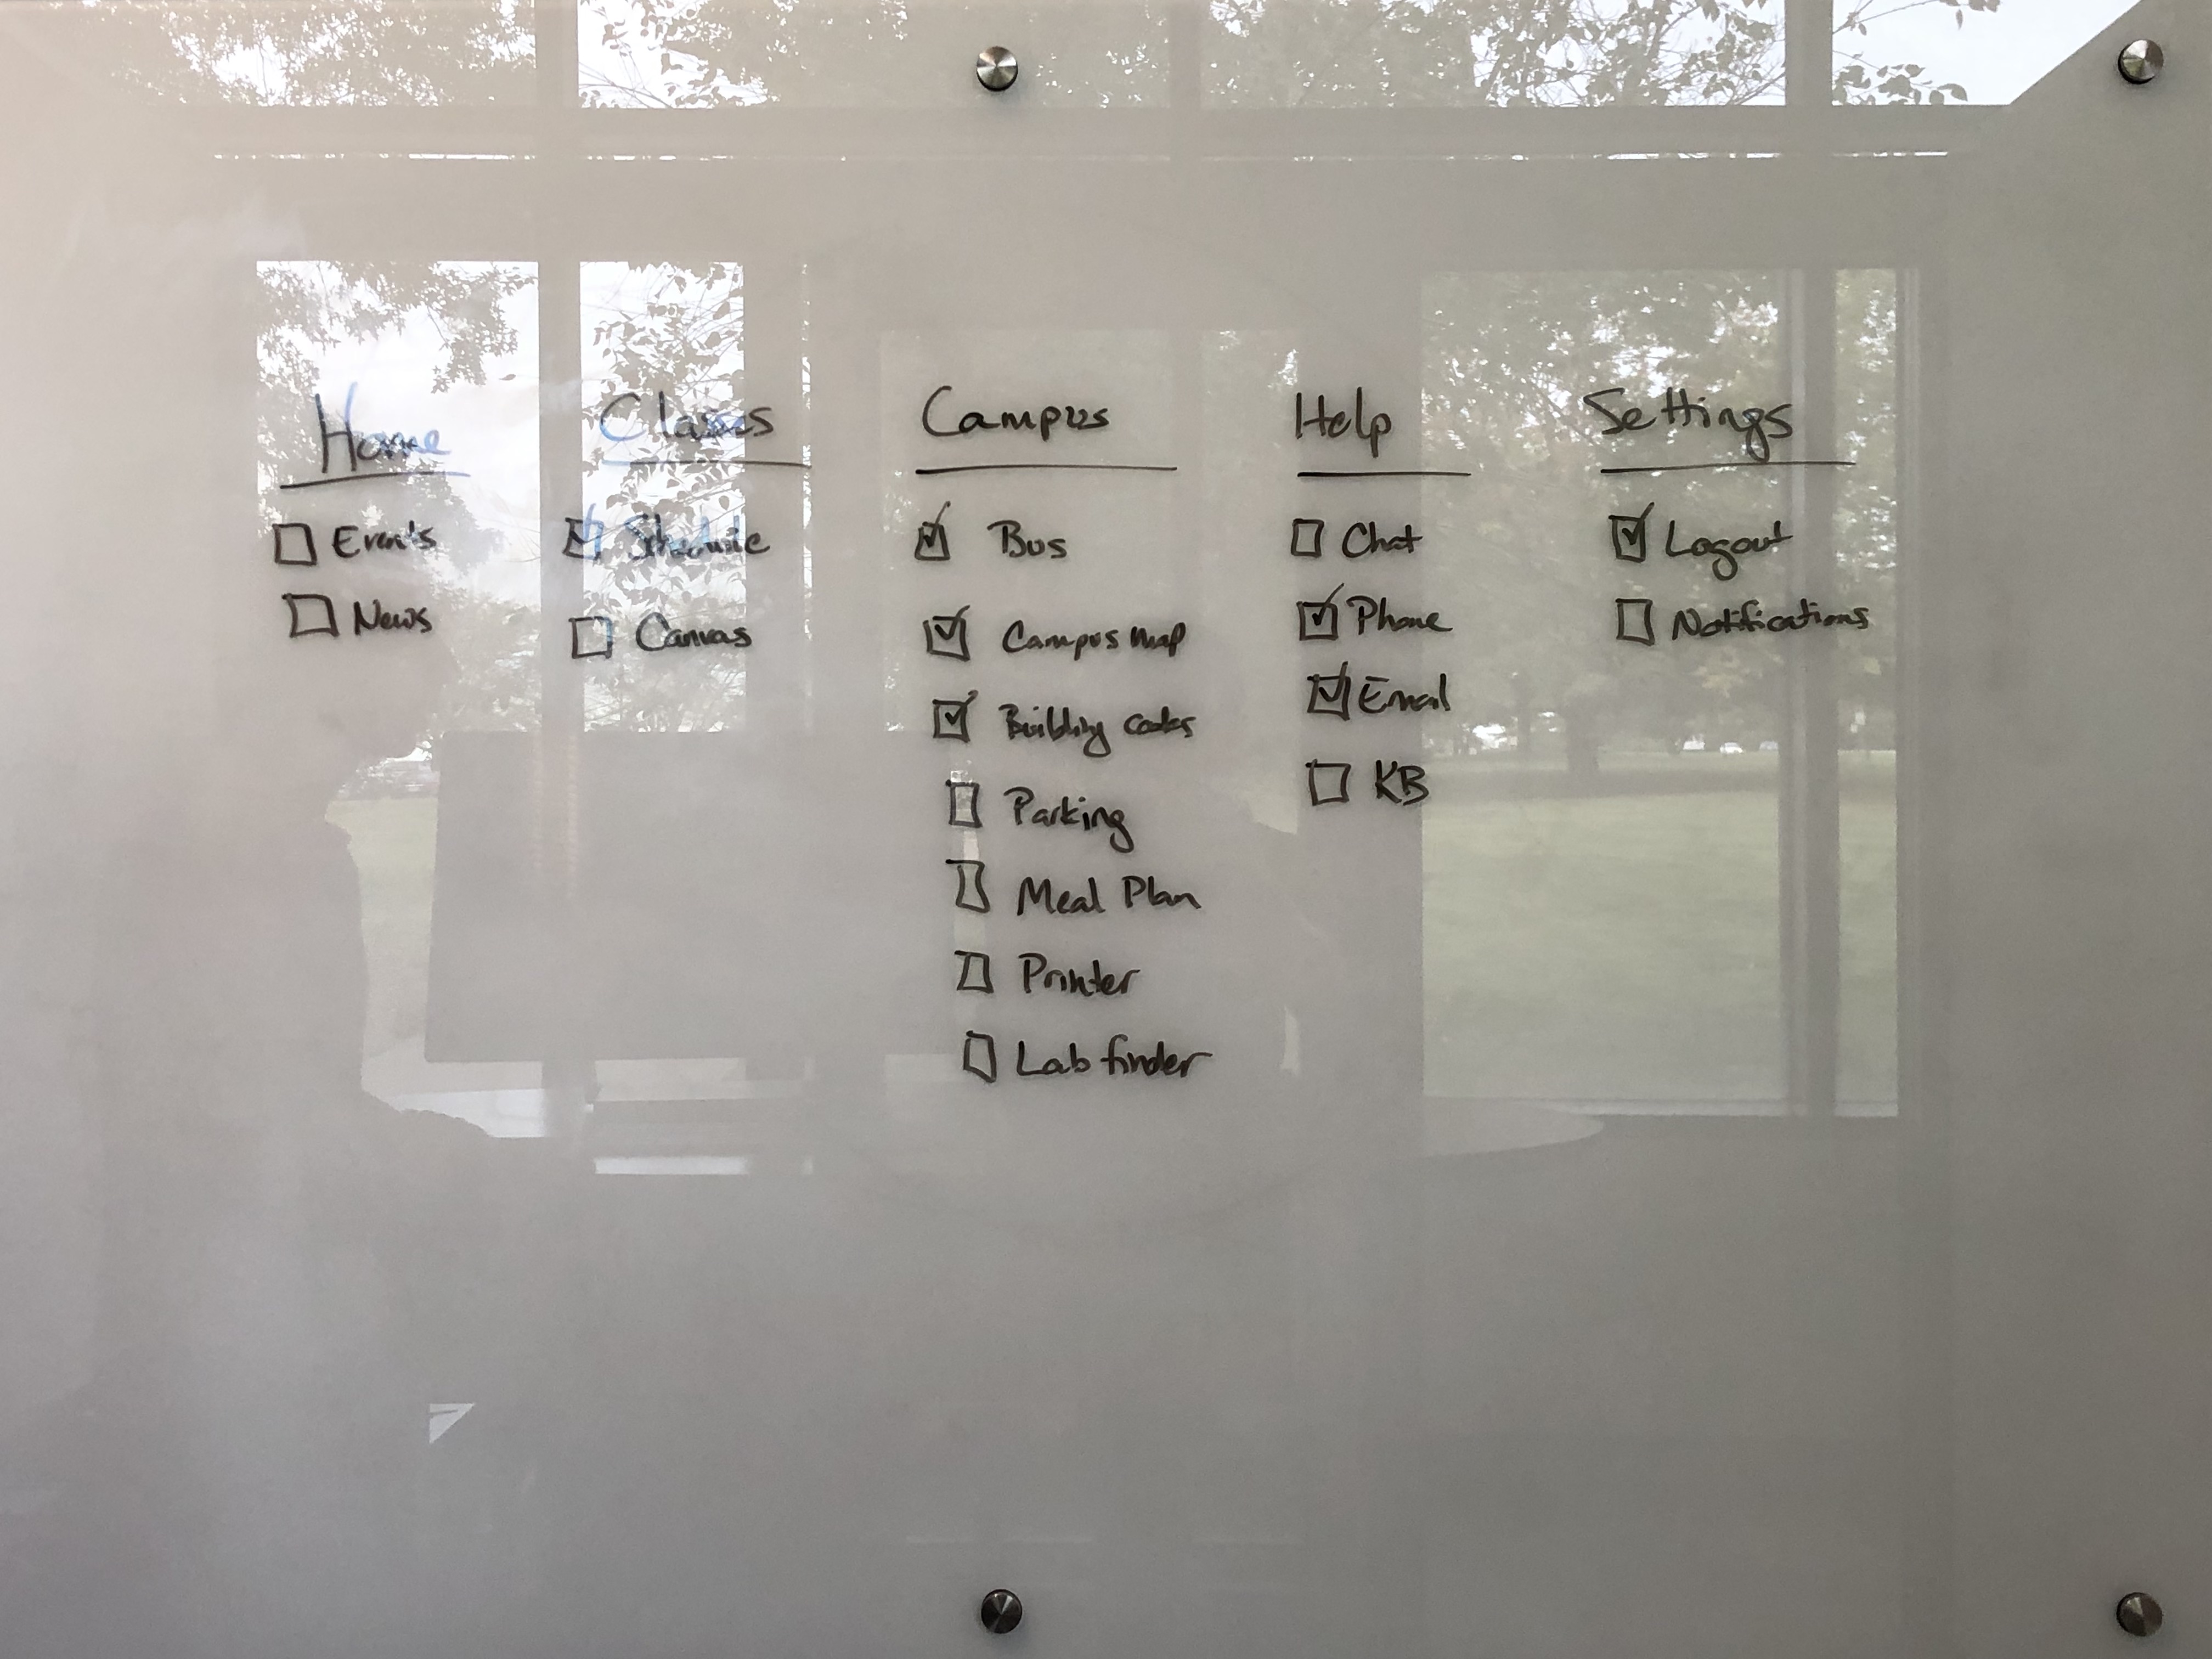 Home
Events
News
Classes
☑ Schedule
☐ Canvas
Campus
☑ Bus
☑ Campus map
☑ Building codes
☐ Parking
☐ Meal Plan
☐ Printer
☐ Lab finder
Help
☐ Chat
☑ Phone
☑ Email
☐ KB
Settings
☑ Logout
☐ Notifications